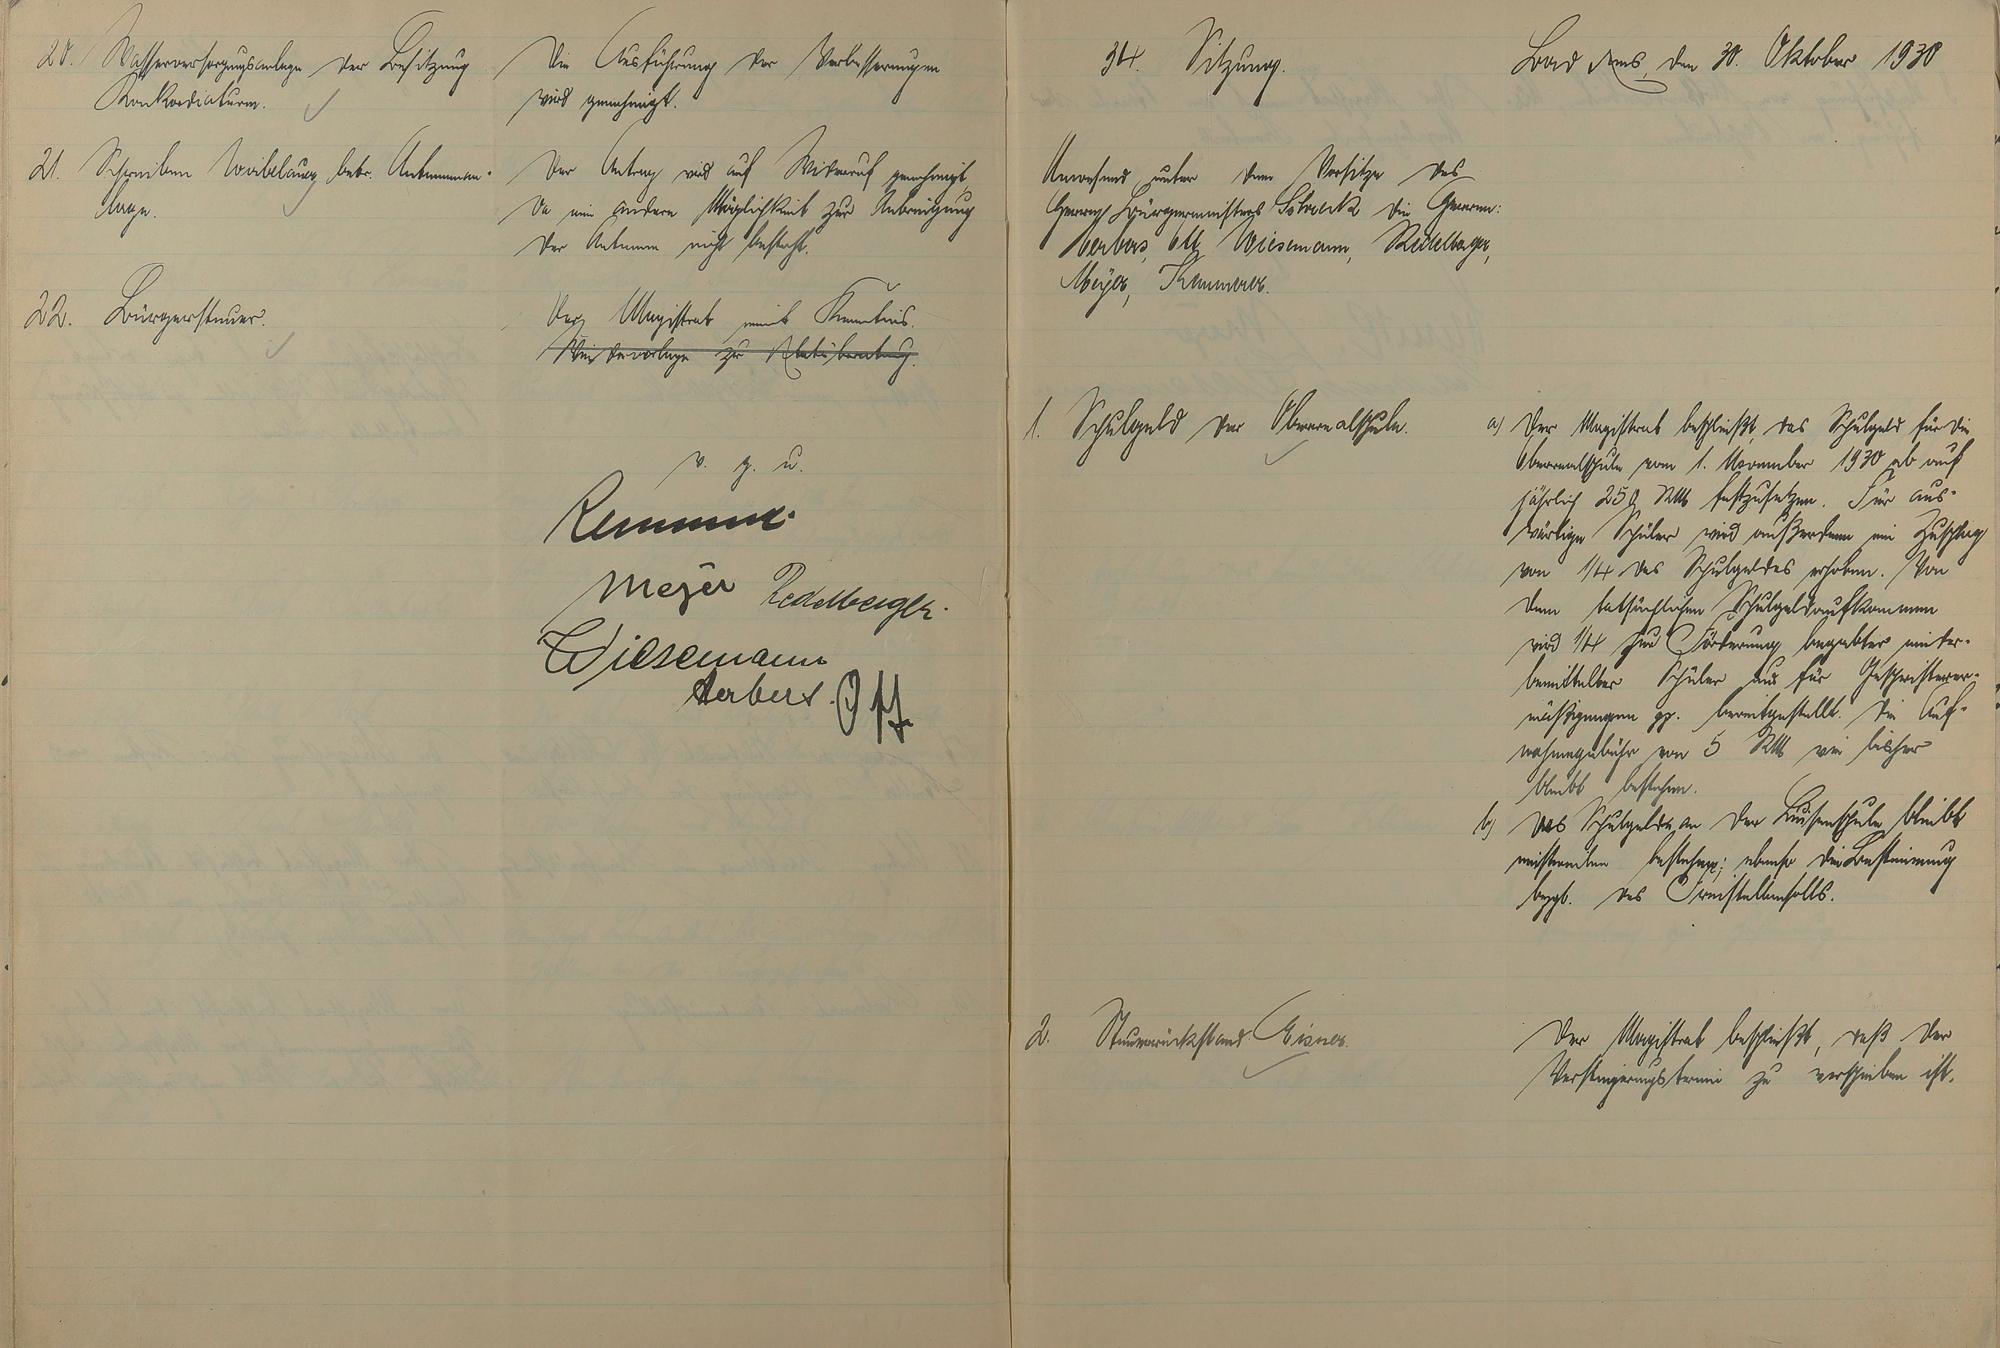 20. Wasserversorgungsanlage der Besitzung
Konkordiaturm.
Die Ausführung der Verbesserungen
wird genehmigt.
21. Schreiben betr. Antennenan-
lage.
Der Antrag wird auf Widerruf genehmigt,
da eine andere Möglichkeit zur Anbringung
der Antenne nicht besteht.
22. Bürgersteuer.
Der Magistrat nimmt Kenntnis.
Wiedervorlage zur Etatsberatung.
v. g. u.
Meyer Redelberger.
Wiesemann
Herbert. Ott
34. Sitzung.
Bad Ems, den 30. Oktober 1930
Anwesend unter dem Vorsitze des
Herrn Bürgermeisters die Herren:
Herbert, Ott, Wiesemann, Redelberger,
Meyer, Kemmerer.
1. Schulgeld der Oberrealschule.
a) Der Magistrat beschließt, das Schulgeld für die
Oberrealschule vom 1. November 1930 ab auf
jährlich 250 RM festzusetzen. Für aus-
wärtige Schüler wird außerdem ein Zuschlag
von 1/4 des Schulgeldes erhoben. Von
dem tatsächlichen Schulgeldaufkommen
wird 1/4 zur Förderung begabter minder-
bemittelter Schüler und für Geschwisterer-
mäßigungen pp. bereitgestellt. Die Auf-
nahmegebühr von 5 RM wie bisher
bleibt bestehen.
b) Das Schulgeld an der Luisenschule bleibt
einstweilen bestehen; ebenso die Bestimmung
bezgl. des
2. Steuerrückstand Eisner.
Der Magistrat beschließt, daß der
Versteigerungstermin zu verschieben ist.